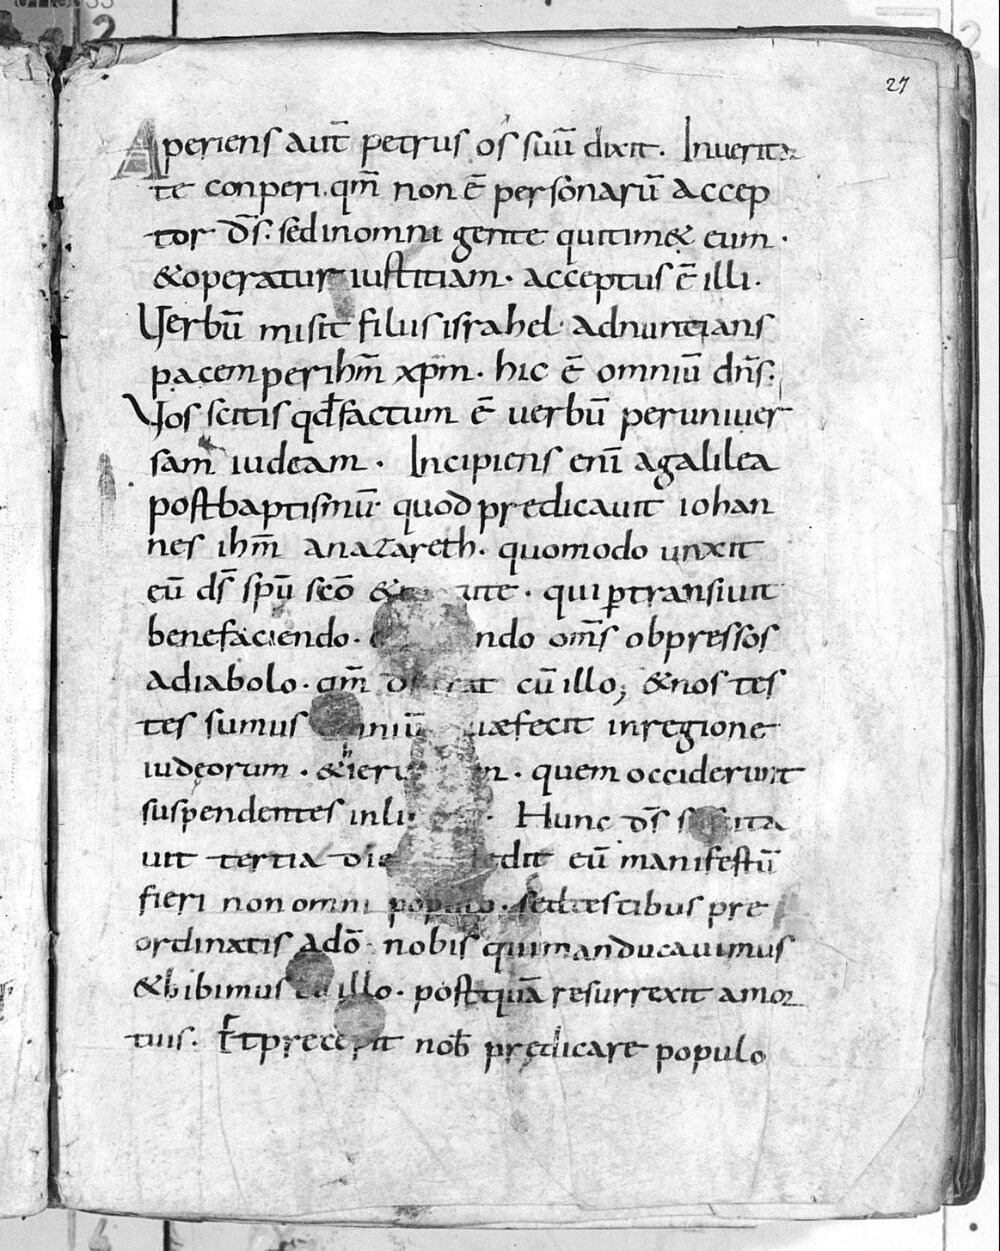 27
Aperiens aut̄ petrus os suū dixit. Inuerita
te conperi. qm̄ non ē personarū accep
tor d̄s. sed inomni gente qui tim& eum.
&operatur iustitiam. acceptus ē illi.
Uerbū misit filiis israhel. adnuncians
pacem per ihm̄ xpm̄. hic ē omniū dn̄s.
Vos scitis qđ factum ē uerbū per uniuer
sam iudeam. Incipiens enī a galilea
post baptismū quod predicauit iohan
nes ihm̄ a nazareth. quomodo unxit
eū ds̄ spū scō qui ꝑtransiuit
benefaciendo. om̄s obpressos
a diabolo. qm̄ cū illo; & nos tes
tes sumus quæ fecit in regione
iudeorum. quem occiderunt
suspendentes in Hunc d̄s
uit tertia die eū manifestū
fieri non omni populo. sed testibus pre
ordinatis a dō. nobis qui manducauimus
&bibimus illo. postquā resurrexit a mor
tuis. Et precepit nob̄ predicare populo